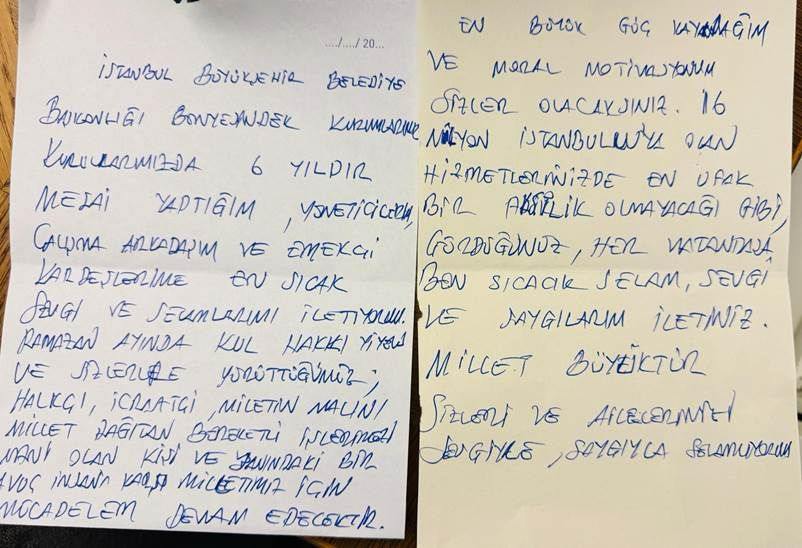 ..../..../ 20...
İSTANBUL BÜYÜKŞEHİR BELEDİYE
BAŞKANLIĞI BÜNYESİNDEK KURUMLARIMIZ
KURULLARIMIZDA 6 YILDIR
MESAİ YAPTIĞIM, YÖNETİCİLERİM,
ÇALIŞMA ARKADAŞIM VE EMEKÇİ
KARDEŞLERİME EN SICAK
SEVGİ VE SELAMLARIMI İLETİYORUM.
RAMAZAN AYINDA KUL HAKKI YİYEN
VE SİZLERLE YÜRÜTTÜĞÜMÜZ;
HALKÇI, İCRAATÇI, MİLETİN MALINI
MİLLET DAĞITAN BEREKETLİ İŞLERİMİZİ
MANİ OLAN KİŞİ VE YANINDAKİ BİR
AVUÇ İNSANA KARŞI MİLLETİMİZ İÇİN
MÜCADELEM DEVAM EDECEKTİR.
EN BÜYÜK GÜÇ KAYNAĞIM
VE MORAL MOTİVASYONUM
SİZLER OLACAKSINIZ. 16
MİLYON İSTANBULLUYA OLAN
HİZMETLERİNİZDE EN UFAK
BİR OLMAYACAĞI GİBİ,
GÖRDÜĞÜNÜZ, HER VATANDAŞA
BEN SICACIK SELAM, SEVGİ
VE SAYGILARIM İLETİNİZ.
MİLLET BÜYÜKTÜR
SİZLERİ VE AİLELERİNİZİ
SEVGİYLE, SAYGIYLA SELAMLIYORUM